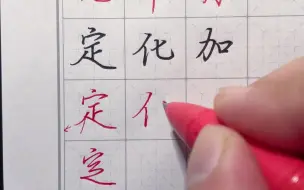 定化加
定
定